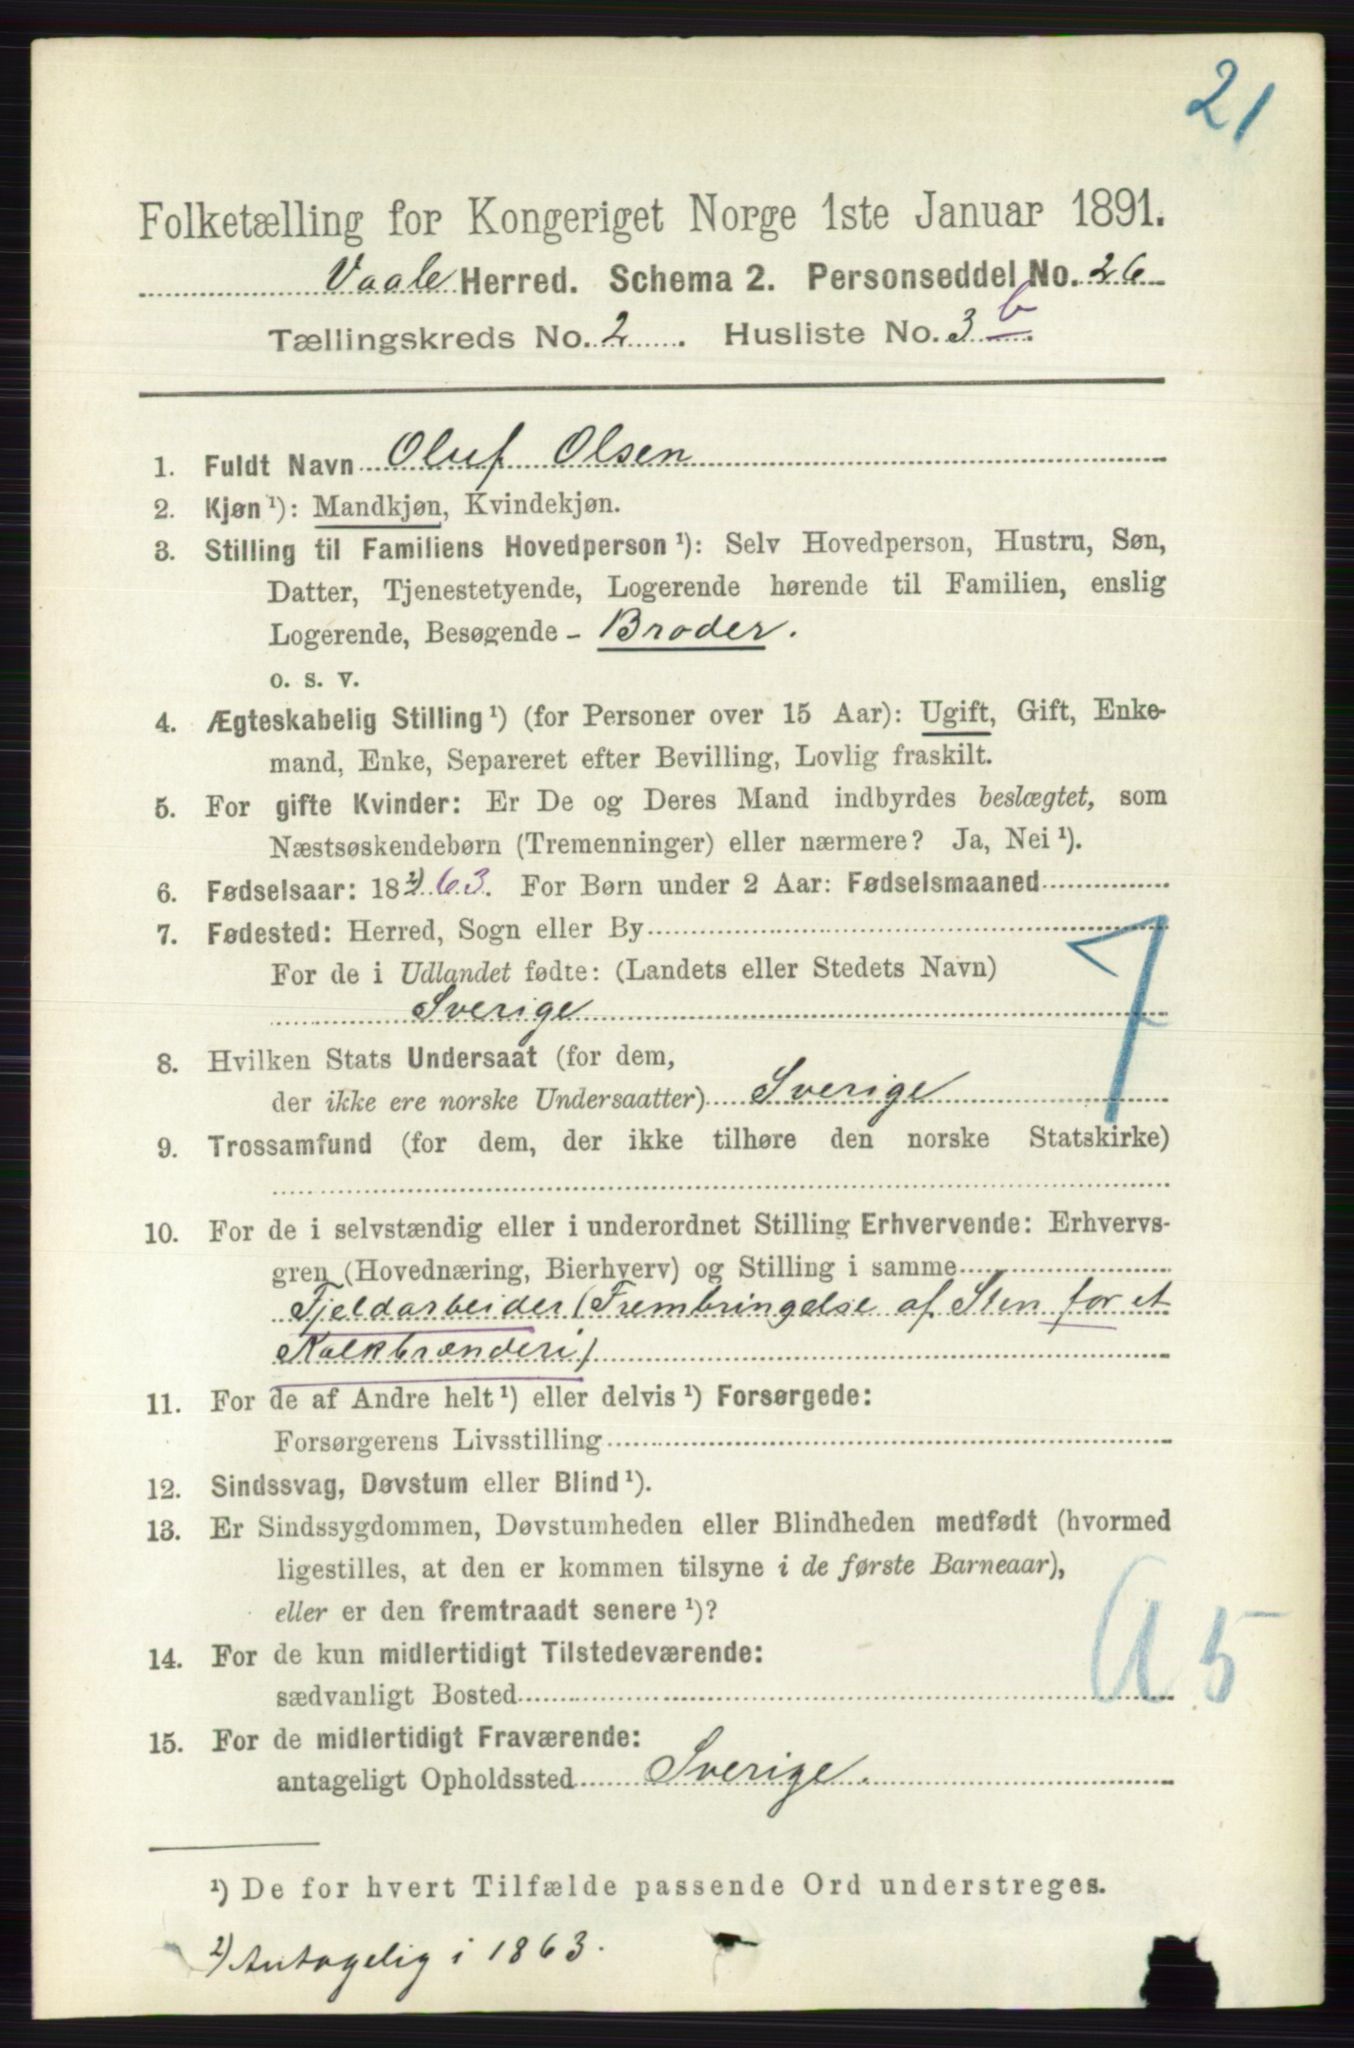 21
Folketælling for Kongeriget Norge 1ste Januar 1891.
Vaale Herred. Schema 2. Personseddel No. 26
Tællingskreds No. 2. Husliste No. 3 b.
1. Fuldt Navn Oluf Olsen
2. Kjøn ¹): Mandkjøn, Kvindekjøn.
3. Stilling til Familiens Hovedperson ¹): Selv Hovedperson, Hustru, Søn,
Datter, Tjenestetyende, Logerende hørende til Familien, enslig
Logerende, Besøgende - Broder.
o. s. v.
4. Ægteskabelig Stilling ¹) (for Personer over 15 Aar): Ugift, Gift, Enke-
mand, Enke, Separeret efter Bevilling, Lovlig fraskilt.
5. For gifte Kvinder: Er De og Deres Mand indbyrdes beslægtet, som
Næstsøskendebørn (Tremenninger) eller nærmere? Ja, Nei ¹).
6. Fødselsaar: 18 ²) 63. For Børn under 2 Aar: Fødselsmaaned
7. Fødested: Herred, Sogn eller By
For de i Udlandet fødte: (Landets eller Stedets Navn)
Sverige
8. Hvilken Stats Undersaat (for dem,
der ikke ere norske Undersaatter) Sverige
9. Trossamfund (for dem, der ikke tilhøre den norske Statskirke)
10. For de i selvstændig eller i underordnet Stilling Erhvervende: Erhvervs-
gren (Hovednæring, Bierhverv) og Stilling i samme
Fjeldarbeider (Frembringelse af Sten for et
Kalkbrænderi)
11. For de af Andre helt ¹) eller delvis ¹) Forsørgede:
Forsørgerens Livsstilling
12. Sindssvag, Døvstum eller Blind ¹).
13. Er Sindssygdommen, Døvstumheden eller Blindheden medfødt (hvormed
ligestilles, at den er kommen tilsyne i de første Barneaar),
eller er den fremtraadt senere ¹)?
14. For de kun midlertidigt Tilstedeværende:
sædvanligt Bosted
A 5
15. For de midlertidigt Fraværende:
antageligt Opholdssted Sverige.
¹) De for hvert Tilfælde passende Ord understreges.
²) Antagelig i 1863.